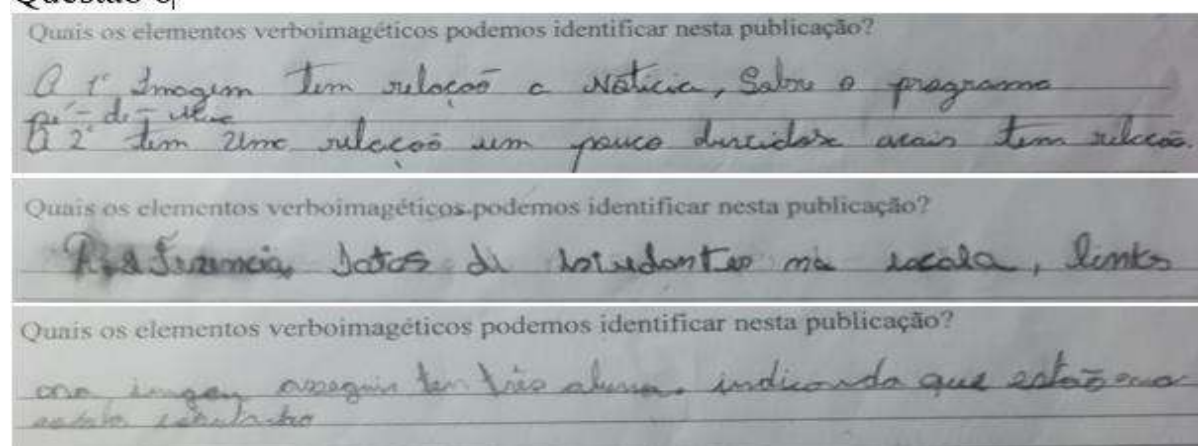 Questão 6
Quais os elementos verboimagéticos podemos identificar nesta publicação?
A 1ª Imagem tem relação a Notícia, Sobre o programa
Pé-de-Meia
A 2ª tem uma relação um pouco mais tem relação.
Quais os elementos verboimagéticos podemos identificar nesta publicação?
fotos de estudantes na escola, links
Quais os elementos verboimagéticos podemos identificar nesta publicação?
imagem tem três alunos. indicando que estão